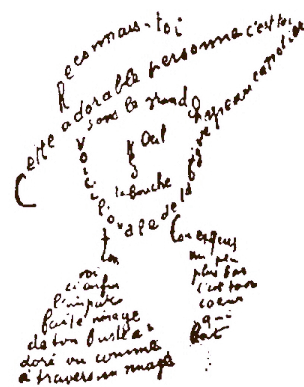 Reconnais-toi
Cette adorable personne c'est toi
Sous le grand chapeau canotier
Œil
Nez
la bouche
Voici l'ovale de ta figure
Ton Cou exquis
Voi
ci enfin
l'impar
faite image
de ton buste a
doré vu comme
à travers un nuage
un peu
plus bas
c'est ton
coeur
qui
bat